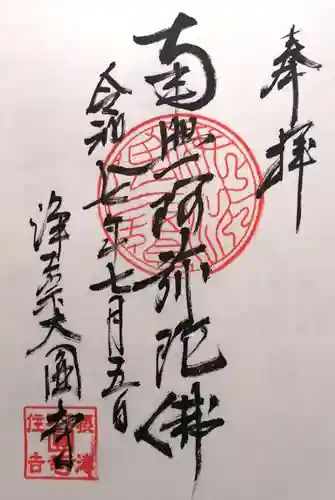 奉拝
南無阿弥陀佛
令和七年七月五日
浄土宗大圓寺
摂津
住吉